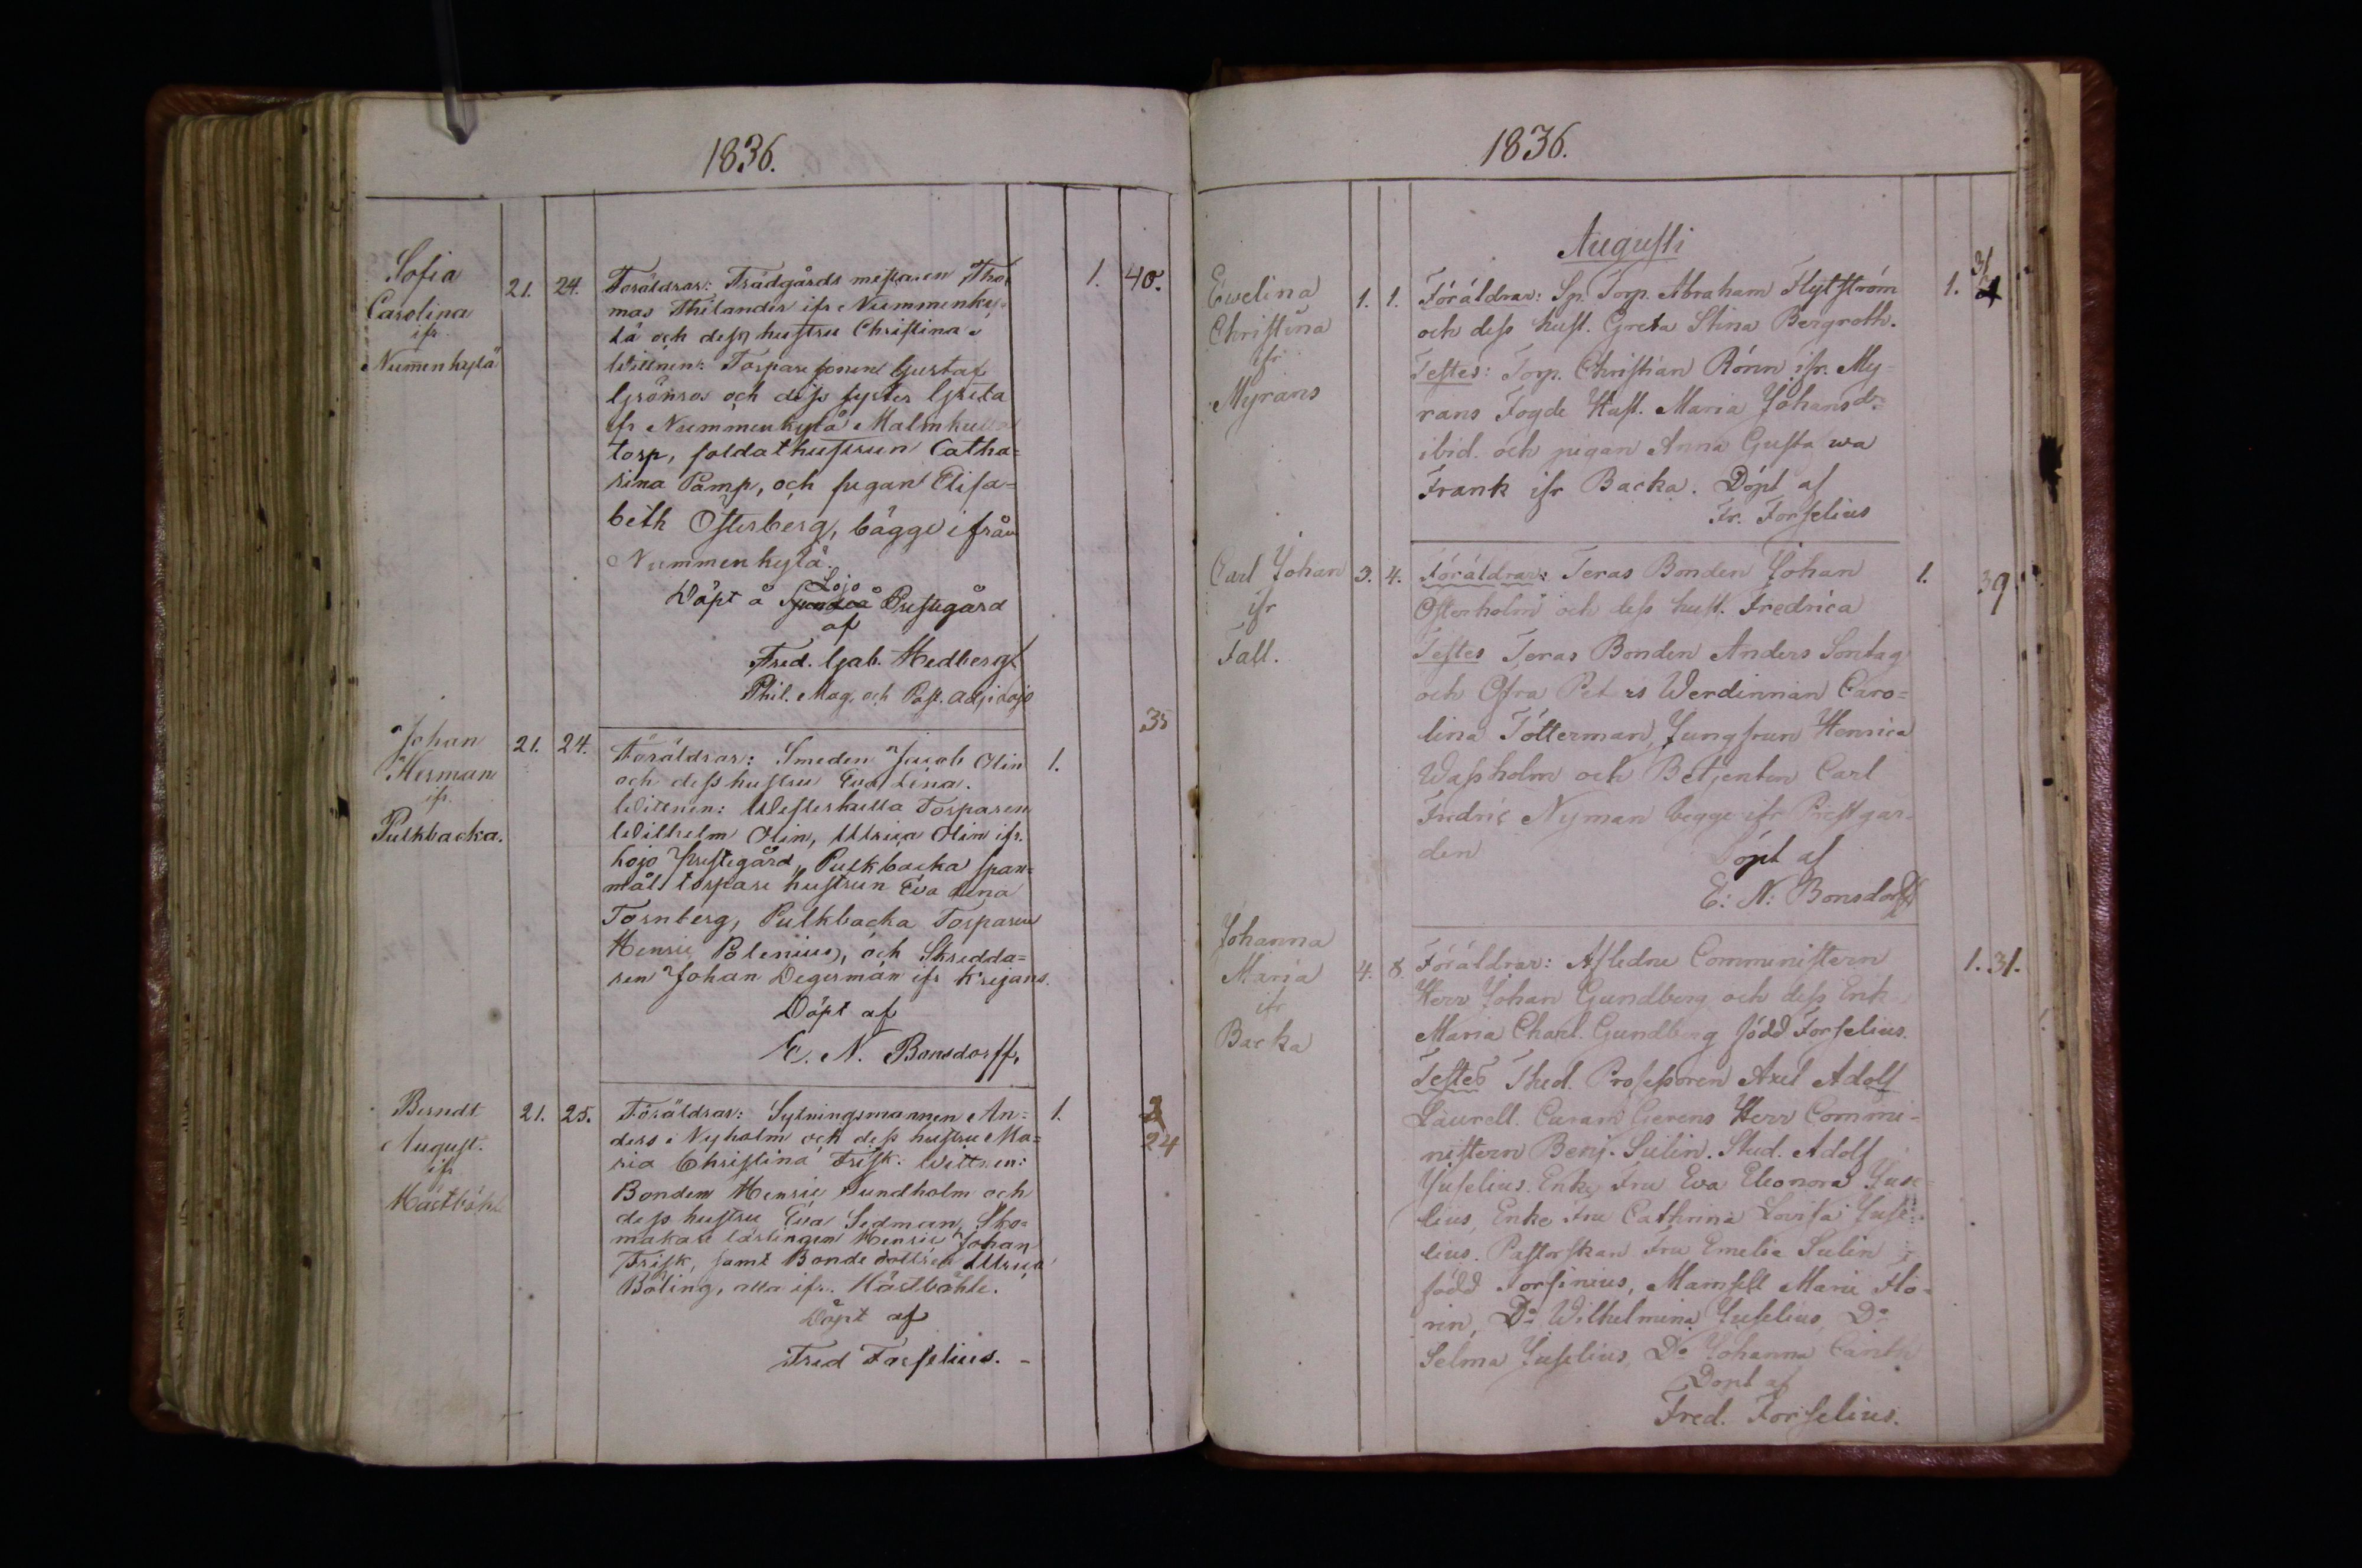 1836.
Sofia
Carolina
ifr.
Nummenkylä
21. 24.
Föräldrar: Trädgårds mästaren Tho-
mas Thilander ifr Nummenky-
lä och dess hustru Christina.
Wittnen: Torpare sonen Gustaf
Grönros och dess syster Greta
ifr Nummenkylä Malmkulla
torp, soldathustrun Catha=
rina Pamp, och pigan Elisa=
beth Österberg, bägge ifrån
Nummenkylä.
Lojo
Döpt å Prestegård
af
Fred. Gab. Hedberg.
Phil. Mag. och Past. adj. i Lojo
1. 40.
Johan
Herman
ifr.
Pulkbacka.
21. 24.
Föräldrar: Smeden Jacob Olin
och dess hustru Eva Lena.
Wittnen: Westerkulla Torparen
Wilhelm Olin, Ulrica Olin ifr.
Lojo Prestegård, Pulkbacka span=
måls torpare hustrun Eva Lena
Tornberg, Pulkbacka Torparen
Henric Polenius, och Skredda=
ren Johan Degerman ifr Krejans.
Döpt af
E. N. Bonsdorff.
1. 35
Berndt
August.
ifr
21. 25.
Föräldrar: Sytningsmannen An=
ders i Nyholm och dess hustru Ma=
ria Christina Frisk. Wittnen:
Bonden Henric Sundholm och
dess hustru Eva Sedman, Sko=
makare lärlingen Henric Johan
Frisk, samt Bonde dottren Ulrica
Böling, alla ifr.
Döpt af
Fred Forselius. -
1. 24
1836.
Augusti
Ewelina
Christina
ifr
Myrans
1. 1.
Föräldrar: Sp. Torp. Abraham Flytström
och dess hust. Greta Stina Bergroth.
Testes: Torp. Christian Rönn ifr. My=
rans Fogde Hust. Maria Johansdr.
ibid. och pigan Anna Gustawa
Frank ifr Backa. Döpt af
Fr. Forselius
1. 31
Carl Johan
ifr
Tall.
3. 4.
Föräldrar: Teras Bonden Johan
Österholm och dess hust. Fredrica
Testes Teras Bonden Anders Sontag
och Ofra Peters Werdinnan Caro=
lina Tötterman, Jungfrun Henrica
Wassholm och Betjenten Carl
Fredric Nyman begge ifr Prestgar-
den
Döpt af
E: N: Bonsdorff
1. 39
Johanna
Maria
ifr
Backa
4. 8
Föräldrar: Afledne Comministern
Herr Johan Gundberg och dess Enk
Maria Charl. Gundberg född Forselius.
Testes Theol. Professoren Axel Adolf
Laurell. Curam Gerens Herr Commi-
nistern Benj. Sulin. Stud. Adolf
Juselius. Enke Fru Eva Eleonora Juse-
lius, Enke Fru Cathrina Lovisa Juse-
lius. Pastorskan Fru Emelie Sulin
född Forsinius, Mamsell Marie Flo-
rin, Do Wilhelmina Juselius, Do
Selma Juselius, Do Johanna
Döpt af
Fred. Forselius.
1. 31.